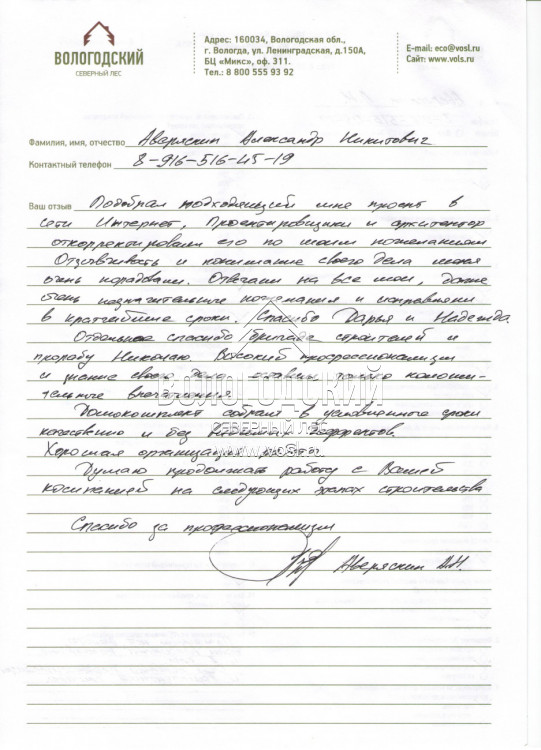 ВОЛОГОДСКИЙ
СЕВЕРНЫЙ ЛЕС
Адрес: 160034, Вологодская обл.,
г. Вологда, ул. Ленинградская, д.150А,
БЦ «Микс», оф. 311.
Тел.: 8 800 555 93 92
E-mail: eco@vosl.ru
Сайт: www.vols.ru
Фамилия, имя, отчество Аверяскин Александр Никитович
Контактный телефон 8-916-516-45-19
Ваш отзыв Подобрал подходящий мне проект в
сети Интернет, Проектировщики и архитектор
откорректировали его по моим пожеланиям
Отзывчивость и понимание своего дела меня
очень порадовали. Отвечали на все мои, даже
очень незначительные пожелания и исправляли
в кратчайшие сроки. Спасибо Дарья и Надежда.
Отдельное спасибо бригаде строителей и
прорабу Николаю. Высокий профессионализм
и знание своего дела оставили только положи-
тельные впечатления.
Домокомплект собрали в условленные сроки
качественно и без видимых дефектов.
Хорошая организация работ.
Думаю продолжать работу с Вашей
компанией на следующих этапах строительства
Спасибо за профессионализм
Аверяскин А.Н.
ВОЛОГОДСКИЙ
СЕВЕРНЫЙ ЛЕС
www.vosl.ru
ВОЛОГОДСКИЙ
СЕВЕРНЫЙ ЛЕС
www.vosl.ru